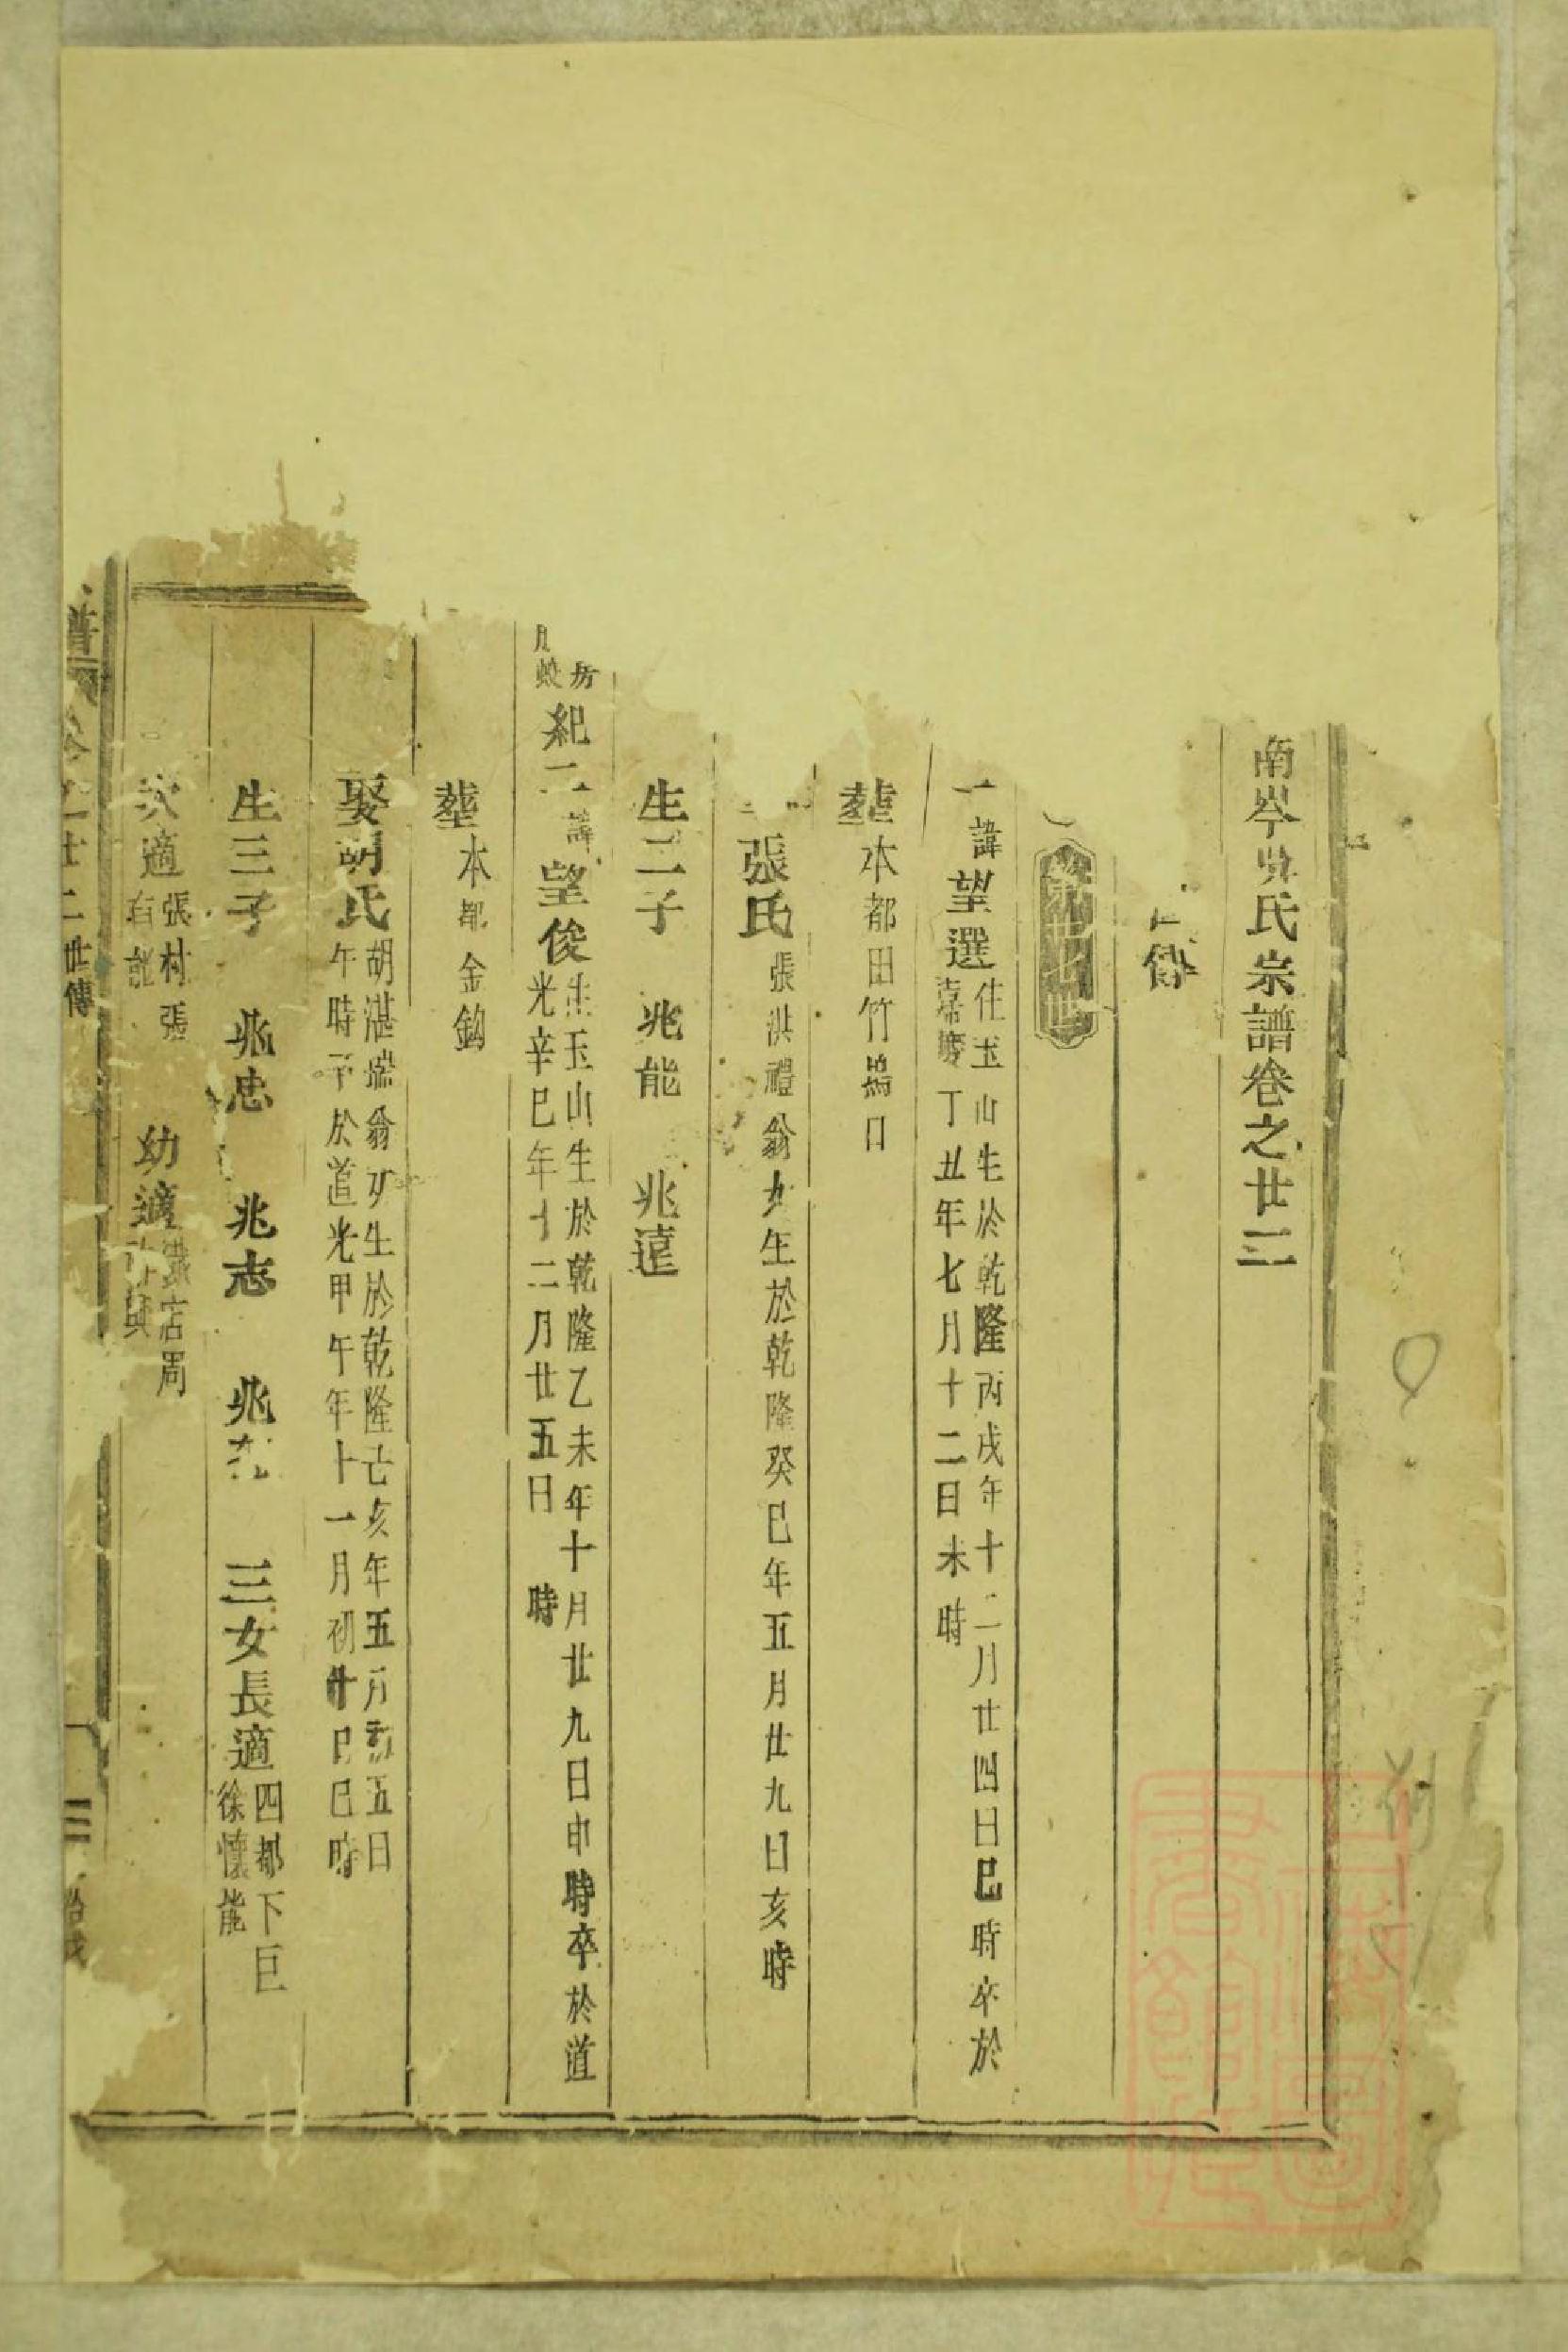 南岑吳氏宗譜卷之廿二
世傳
一諱望選住玉山生於乾隆丙戌年十二月廿四日巳時卒於
嘉慶丁丑年七月十二日未時
葬本都田竹塢口
張氏張洪禮翁女生於乾隆癸巳年五月廿九日亥時
生二子 兆能 兆遠
房
紀二諱望俊生玉山生於乾隆乙未年十月廿九日申時卒於道
光辛巳年十二月廿五日 時
葬本都金鈎
娶胡氏胡湛瑞翁女生於乾隆己亥年五月初五日
午時卒於道光甲午年十一月初十日巳時
生三子 兆忠 兆志 兆 三女長適四都下巨
徐懷能
次適張村張 幼適店周
譜 卷之廿二世傳